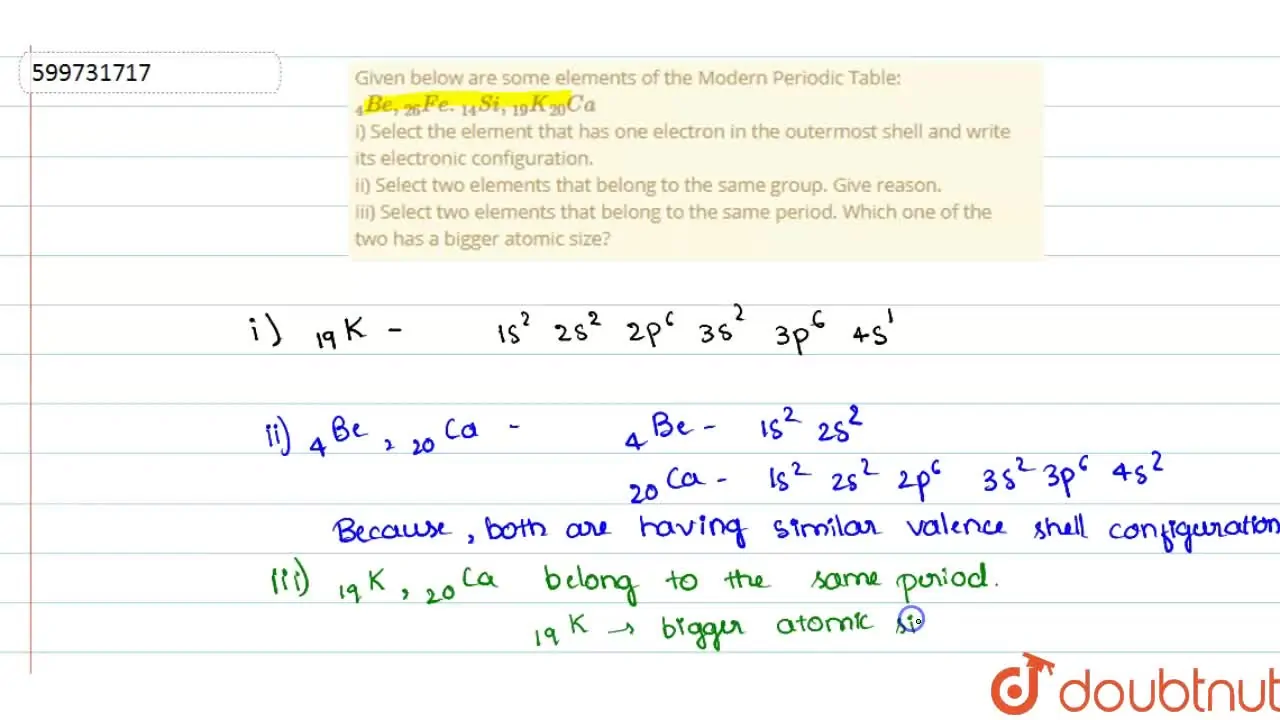 599731717
Given below are some elements of the Modern Periodic Table:
₄Be, ₂₆Fe. ₁₄Si, ₁₉K₂₀Ca
i) Select the element that has one electron in the outermost shell and write
its electronic configuration.
ii) Select two elements that belong to the same group. Give reason.
iii) Select two elements that belong to the same period. Which one of the
two has a bigger atomic size?
i) ₁₉K - 1s² 2s² 2p⁶ 3s² 3p⁶ 4s¹
ii) ₄Be, ₂₀Ca - ₄Be - 1s² 2s²
₂₀Ca - 1s² 2s² 2p⁶ 3s² 3p⁶ 4s²
Because, both are having similar valence shell configuration
iii) ₁₉K, ₂₀Ca belong to the same period.
₁₉K → bigger atomic si
doubtnut